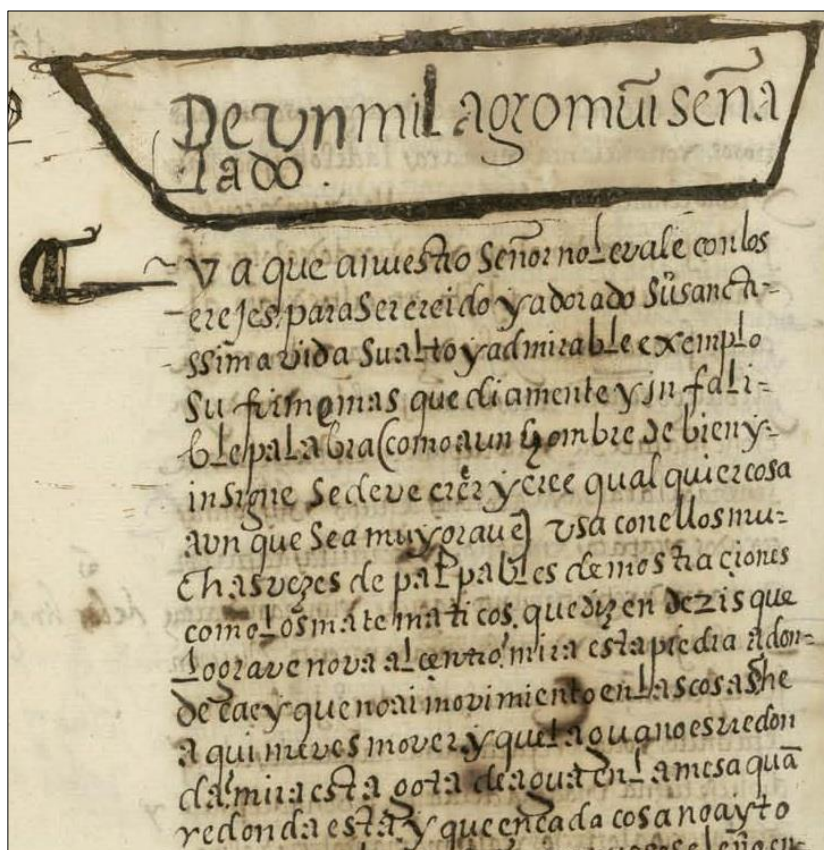 De vn milagro mũi señа
lado.
Ya que a nuestro Señor no le vale con los
erejes para ser creido y adorado sũ sancta-
ssima vida su alto y admirable exemplo
su firme mas que diamente y in fali-
ble palabra (como a un hombre de bien y-
insigne se deve creer y cree qual quier cosa
aun que sea muy grave) usa con ellos mu-
chas vezes de palpables demostraciones
como los matematicos. que dizen dezis que
lo grave no va al centro! mira esta piedra a don-
de cae y que no ai movimiento en las cosas he
a qui me ves mover. y que la agua no es redon
da! mira esta gota de agua en la mesa quã
redonda esta. y que en cada cosa no ay to